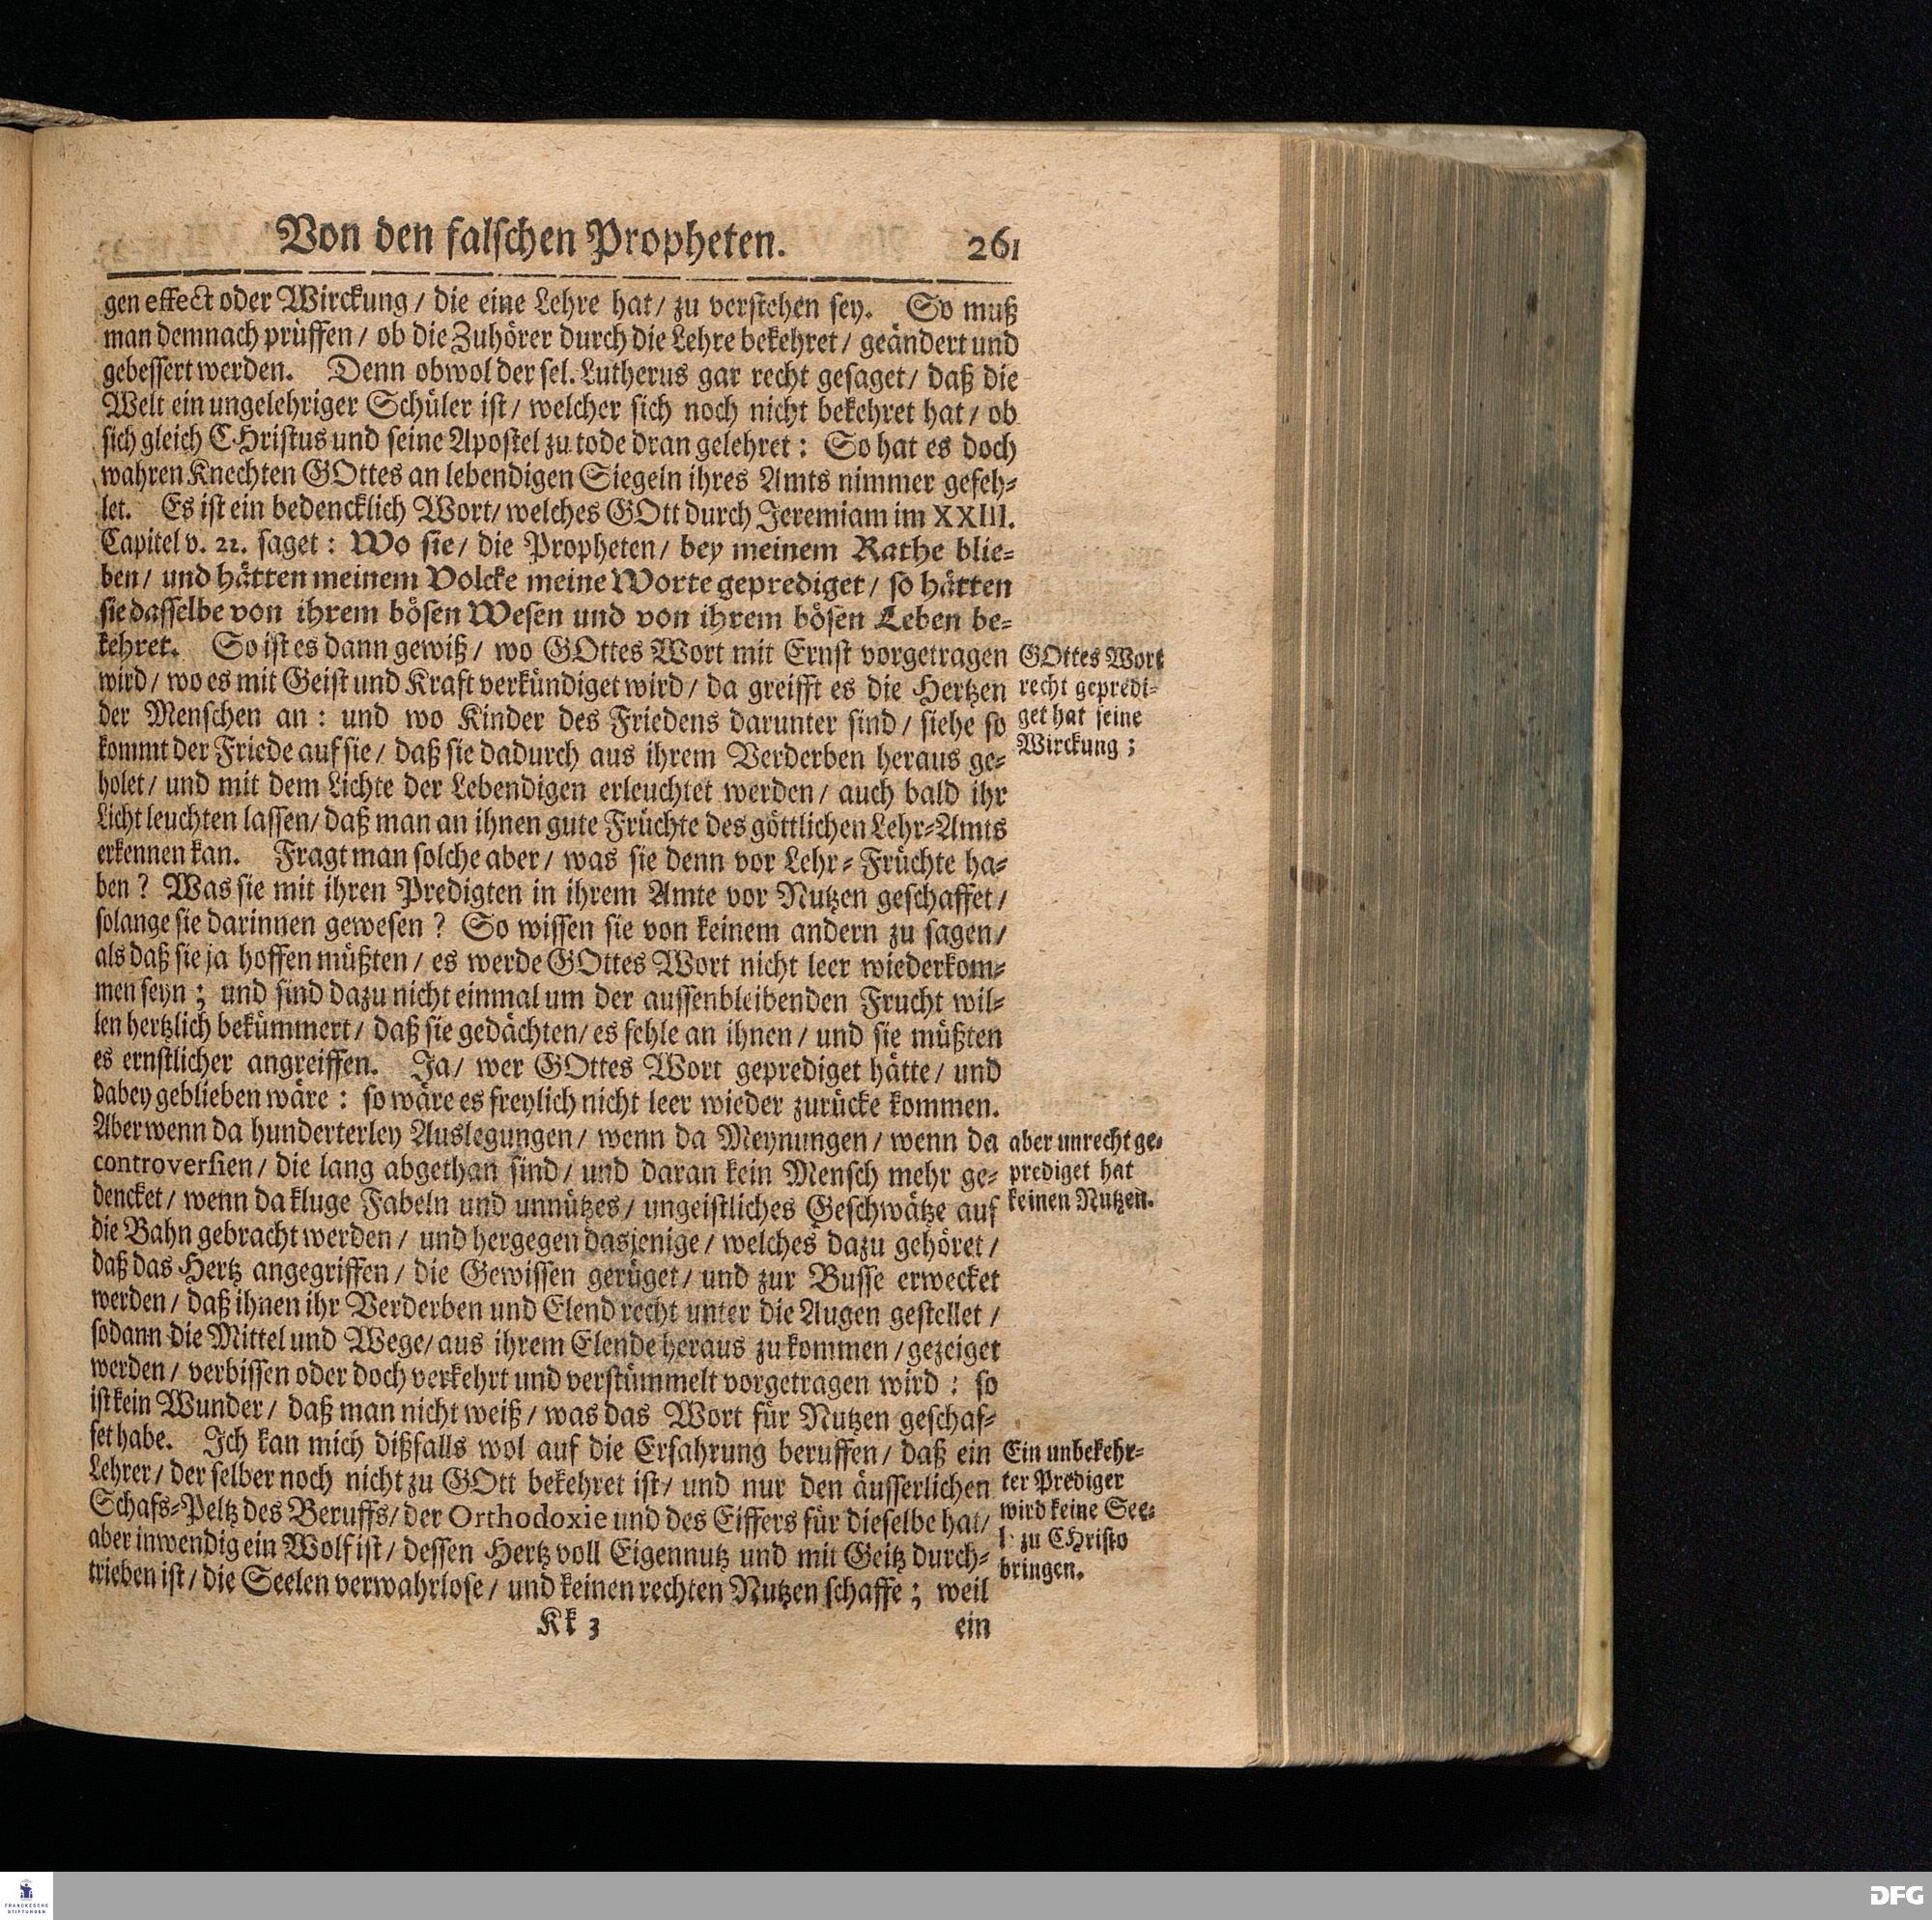 Von den falschen Propheten. 261
gen effect oder Wirckung / die eine Lehre hat / zu verstehen sey. So muß
man demnach prüffen / ob die Zuhörer durch die Lehre bekehret / geändert und
gebessert werden. Denn obwol der sel. Lutherus gar recht gesaget / daß die
Welt ein ungelehriger Schüler ist / welcher sich noch nicht bekehret hat / ob
sich gleich CHristus und seine Apostel zu tode dran gelehret : So hat es doch
wahren Knechten GOttes an lebendigen Siegeln ihres Amts nimmer gefeh-
let. Es ist ein bedencklich Wort / welches GOtt durch Jeremiam im XXIII.
Capitel v. 22. saget : Wo sie / die Propheten / bey meinem Rathe blie-
ben / und hätten meinem Volcke meine Worte geprediget / so hätten
sie dasselbe von ihrem bösen Wesen und von ihrem bösen Leben be-
kehret. So ist es dann gewiß / wo GOttes Wort mit Ernst vorgetragen
wird / wo es mit Geist und Kraft verkündiget wird / da greifft es die Hertzen
der Menschen an : und wo Kinder des Friedens darunter sind / siehe so
kommt der Friede auf sie / daß sie dadurch aus ihrem Verderben heraus ge-
holet / und mit dem Lichte der Lebendigen erleuchtet werden / auch bald ihr
Licht leuchten lassen / daß man an ihnen gute Früchte des göttlichen Lehr-Amts
erkennen kan. Fragt man solche aber / was sie denn vor Lehr-Früchte ha-
ben ? Was sie mit ihren Predigten in ihrem Amte vor Nutzen geschaffet /
solange sie darinnen gewesen ? So wissen sie von keinem andern zu sagen /
als daß sie ja hoffen müßten / es werde GOttes Wort nicht leer wiederkom-
men seyn ; und sind dazu nicht einmal um der aussenbleibenden Frucht wil-
len hertzlich bekümmert / daß sie gedächten / es fehle an ihnen / und sie müßten
es ernstlicher angreiffen. Ja / wer GOttes Wort geprediget hätte / und
dabey geblieben wäre : so wäre es freylich nicht leer wieder zurücke kommen.
Aber wenn da hunderterley Auslegungen / wenn da Meynungen / wenn da
controversien / die lang abgethan sind / und daran kein Mensch mehr ge-
dencket / wenn da kluge Fabeln und unnützes / ungeistliches Geschwätze auf
die Bahn gebracht werden / und hergegen dasjenige / welches dazu gehöret /
daß das Hertz angegriffen / die Gewissen gerüget / und zur Busse erwecket
werden / daß ihnen ihr Verderben und Elend recht unter die Augen gestellet /
sodann die Mittel und Wege / aus ihrem Elende heraus zu kommen / gezeiget
werden / verbissen oder doch verkehrt und verstümmelt vorgetragen wird : so
ist kein Wunder / daß man nicht weiß / was das Wort für Nutzen geschaf-
fet habe. Ich kan mich dißfalls wol auf die Erfahrung beruffen / daß ein
Lehrer / der selber noch nicht zu GOtt bekehret ist / und nur den äusserlichen
Schafs-Peltz des Beruffs / der Orthodoxie und des Eiffers für dieselbe hat /
aber inwendig ein Wolf ist / dessen Hertz voll Eigennutz und mit Geitz durch-
trieben ist / die Seelen verwahrlose / und keinen rechten Nutzen schaffe ; weil
Kk 3 ein
GOttes Wort
recht gepredi-
get hat seine
Wirckung ;
aber unrecht ge-
prediget hat
keinen Nutzen.
Ein unbekehr-
ter Prediger
wird keine See-
l zu CHristo
bringen.
FRANCKESCHE
STIFTUNGEN
DFG